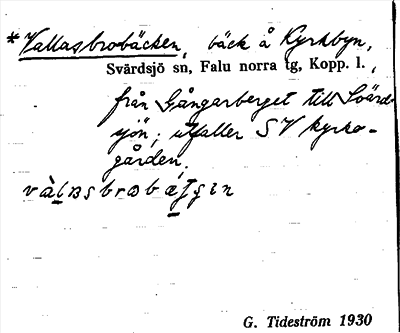 *Vallasbrobäcken, bäck å Kyrkbyn,
Svärdsjö sn, Falu norra tg, Kopp. l.,
från Gångarberget till Svärd-
sjön; utfaller SV kyrko-
gården.
G. Tideström 1930